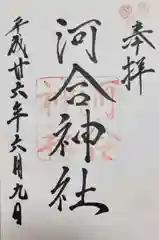 奉拝
河合神社
平成廿六年六月九日